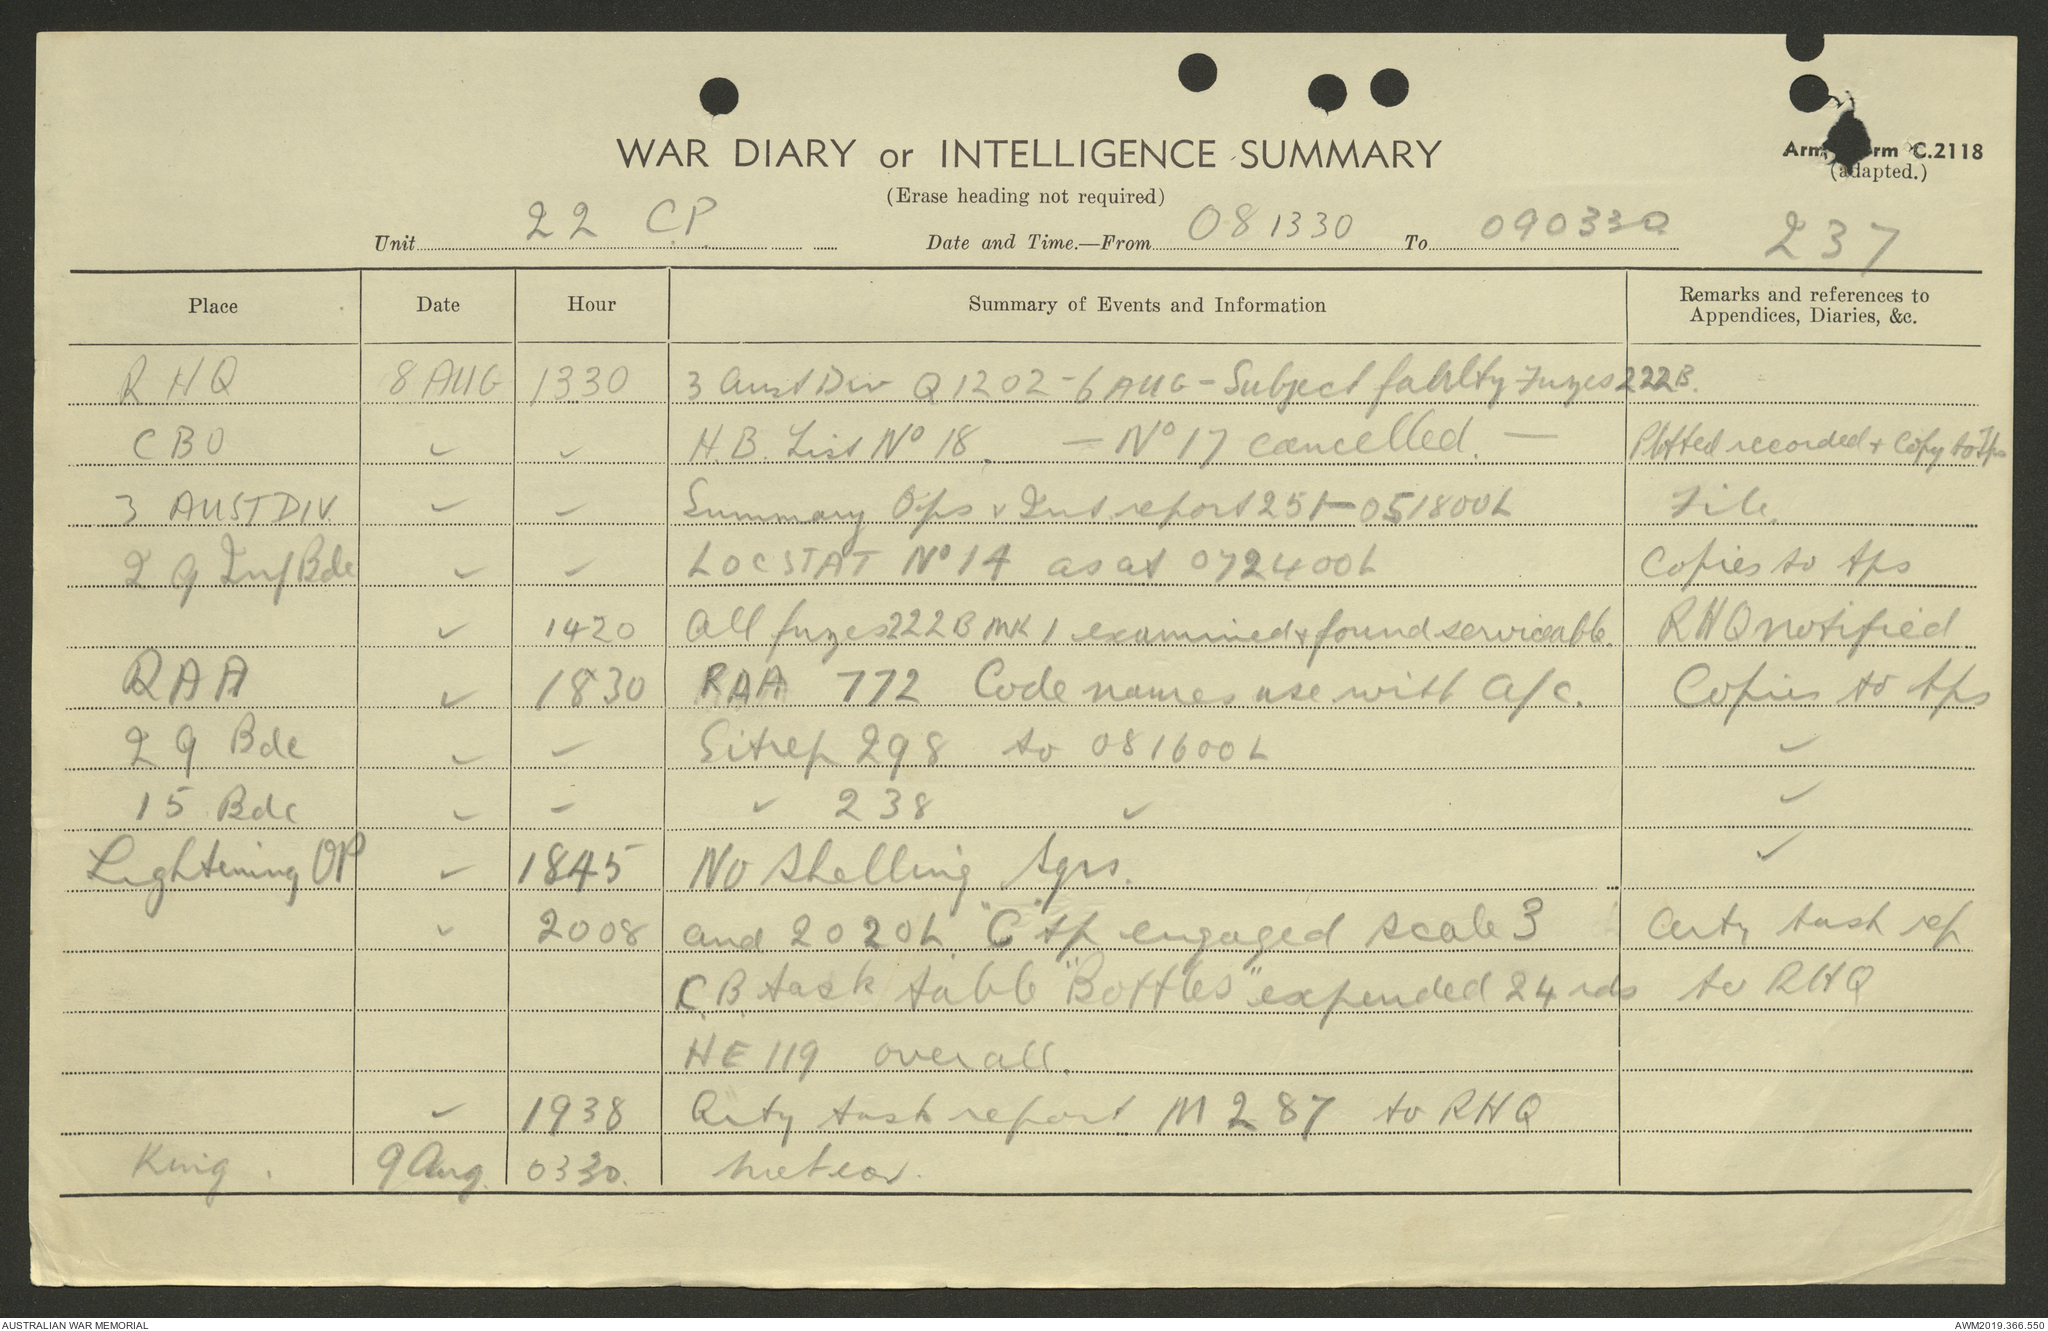 WAR DIARY or INTELLIGENCE SUMMARY
(Erase heading not required)
Army Form C.2118
(adapted.)
237
Unit 22 C.P. Date and Time.—From 081330 To 090330
Place Date Hour Summary of Events and Information Remarks and references to Appendices, Diaries, &c.
RHQ 8 AUG 1330 3 Aust Div Q1202 - 6 AUG - Subject faulty Fuzes 222B.
CBO ✓ ✓ H.B. List No 18. — No 17 cancelled. — Plotted recorded + Copy to Tps
3 AUST DIV. ✓ ✓ Summary Ops & Int report 251 - 051800L File.
29 Inf Bde ✓ ✓ LOCSTAT No 14 as at 072400L Copies to tps
✓ 1420 All fuzes 222B MK 1 examined & found serviceable. RHQ notified
RAA ✓ 1830 RAA 772 Code names use with A/C. Copies to tps
29 Bde ✓ ✓ Sitrep 298 to 081600L ✓
15 Bde ✓ ✓ ✓ 238 ✓ ✓
Lightening OP ✓ 1845 No shelling tgts. ✓
✓ 2008 and 2020L "C" tp engaged scale 3 Arty task rep
C.B. task table "Bottles" expended 24 rds to RHQ
HE 119 overall.
✓ 1938 Arty task report M287 to RHQ
King. 9 Aug. 0330. Meteor.
AUSTRALIAN WAR MEMORIAL
AWM2019.366.550